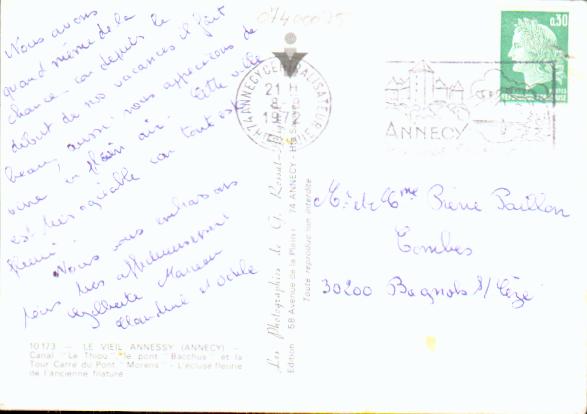 Nous avons
quand même de la
chance car depuis le
début de nos vacances il fait
beau, aussi nous apprécions de
vivre en plein air. Cette ville
est très agréable car tout est
fleuri.
Nous vous embrassons
tous très affectueusement
Claudine et Odile
10173 — LE VIEIL ANNESSY (ANNECY) —
Canal "Le Thiou" le pont "Bacchus" et la
Tour Carre du Pont "Morens" - L'écluse fleurie
de l'ancienne filature
07400025
Les Photographies de G.
Edition 58 Avenue de la Plaine - 74 ANNECY
Toute reproduction interdite
74 ANNECY CENTRALISATEUR
21 H
8
1972
ANNECY
0,30
Mr et Mme Pierre Paillon
Combes
30200 Bagnols s/ Cèze